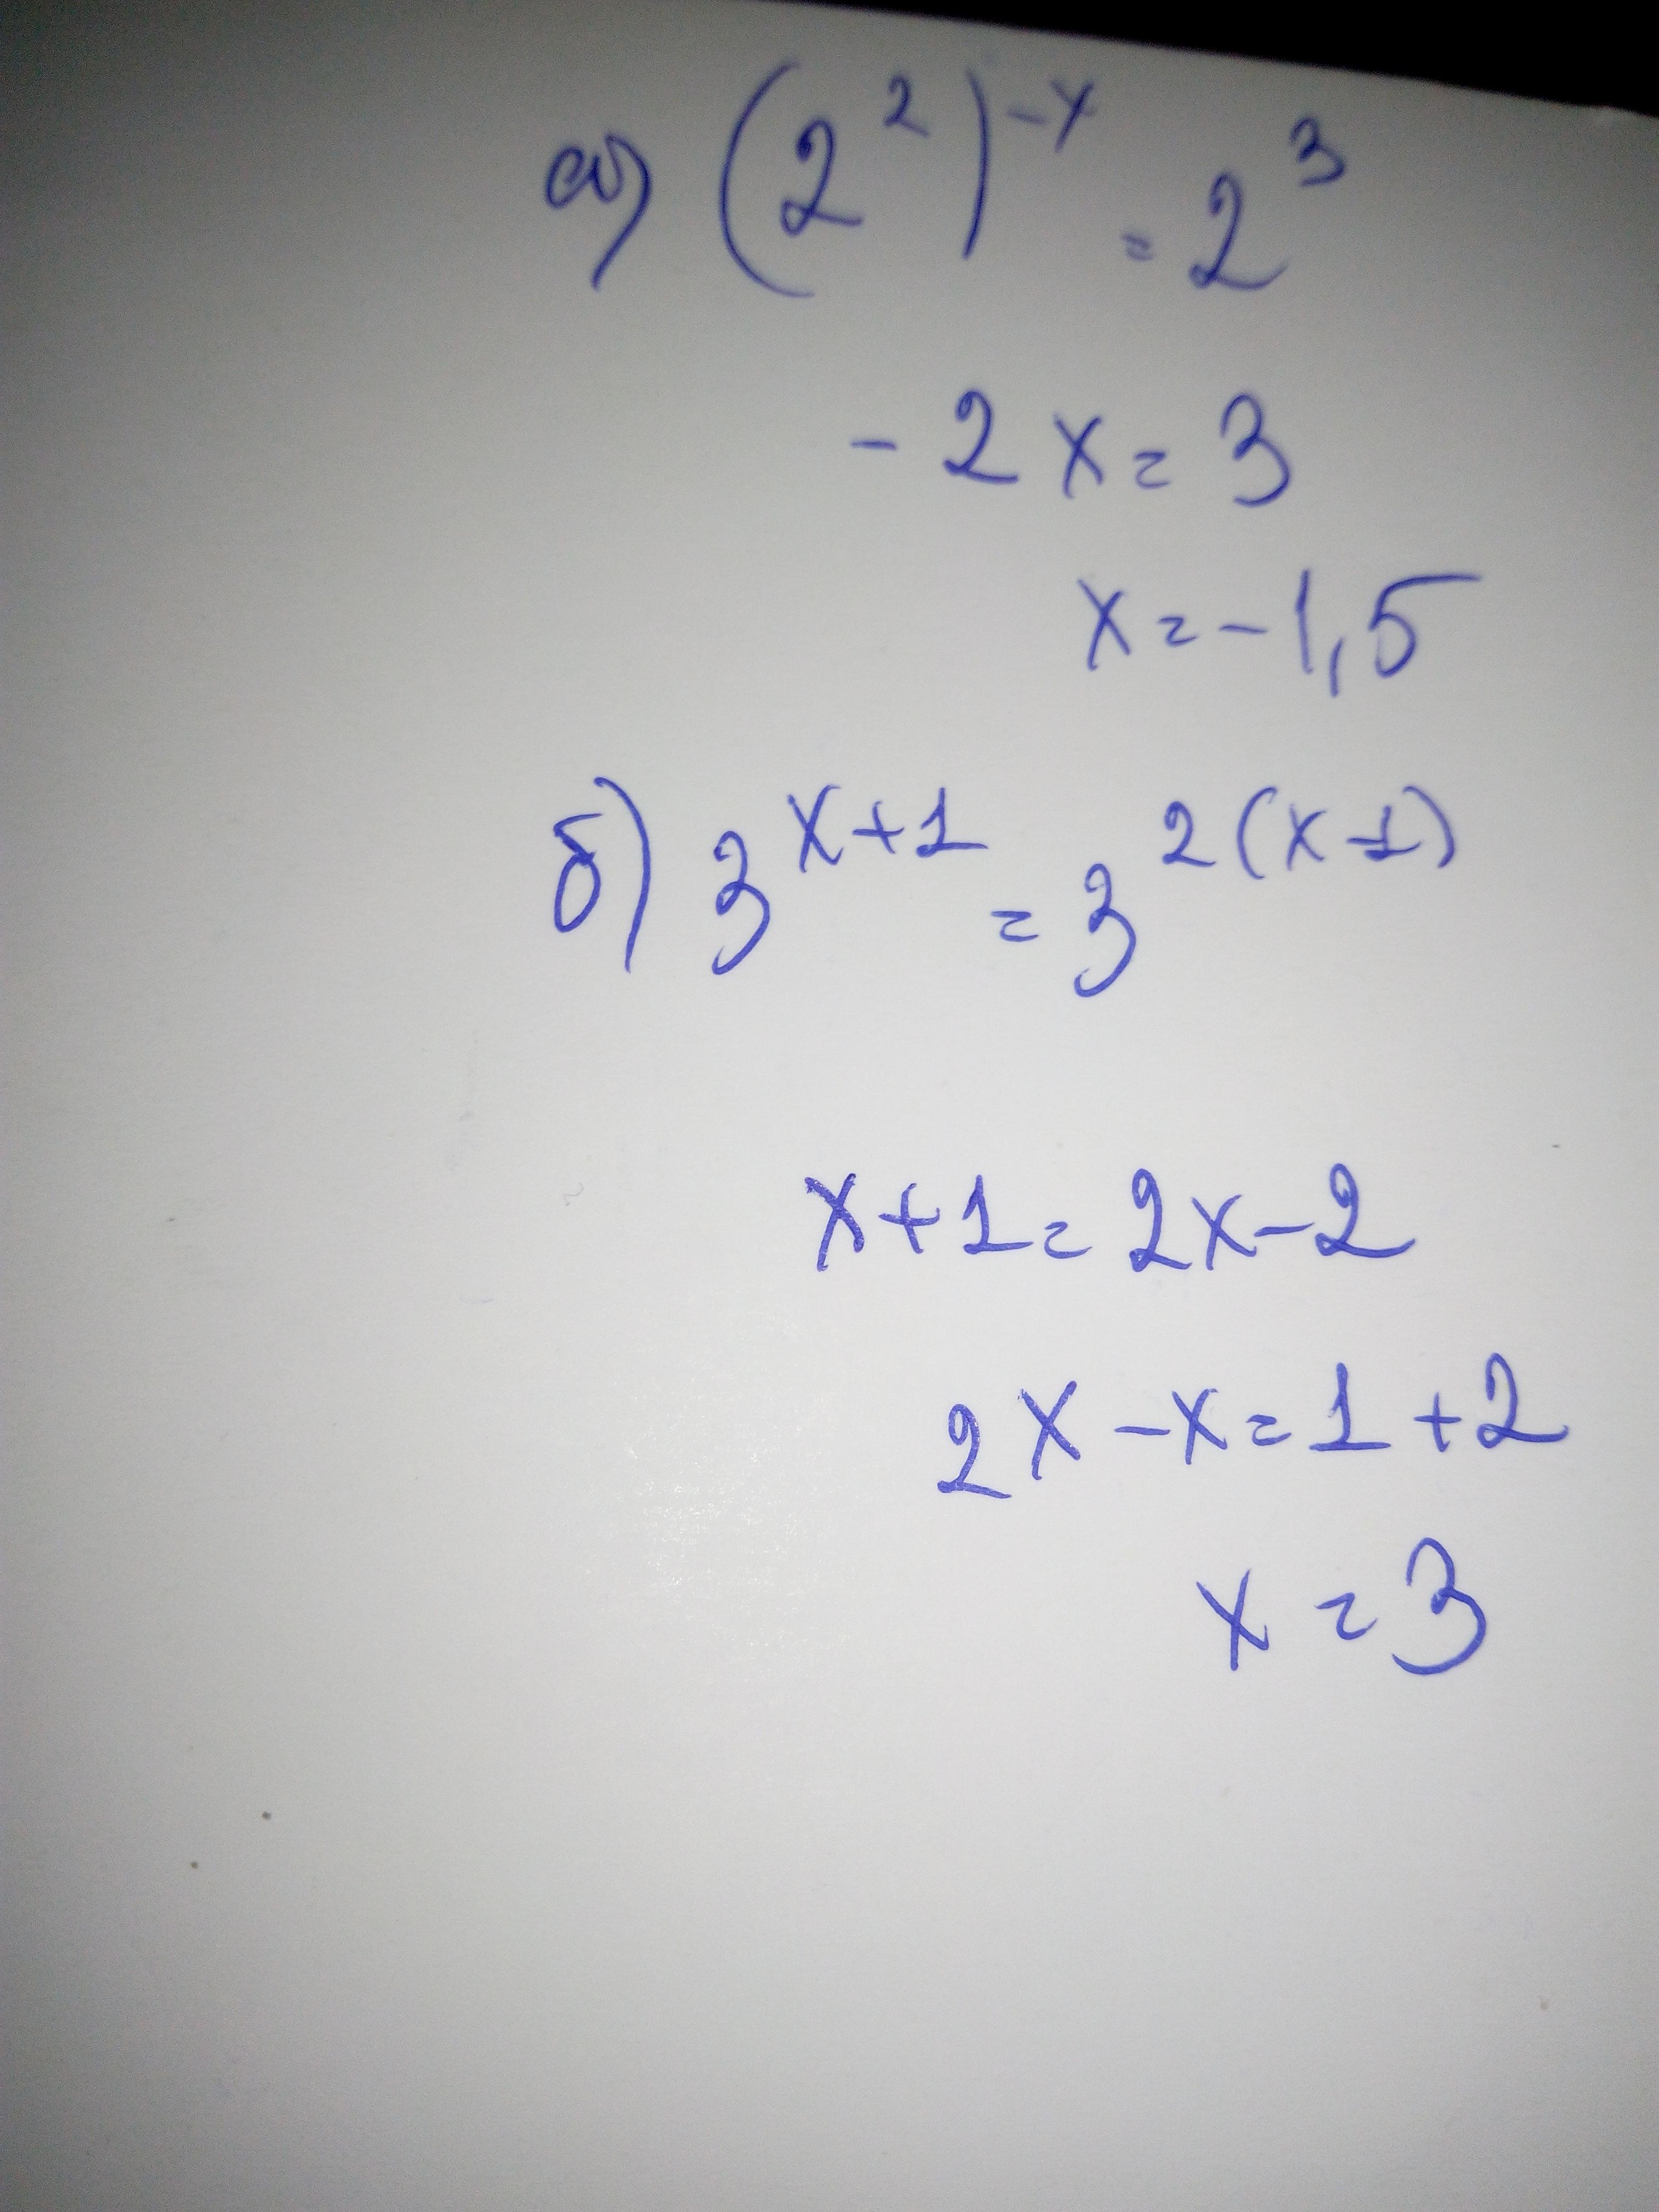 а) (2²)⁻ˣ = 2³
- 2x = 3
x = -1,5
б) 3ˣ⁺¹ = 3²⁽ˣ⁻¹⁾
x+1 = 2x-2
2x-x = 1+2
x = 3